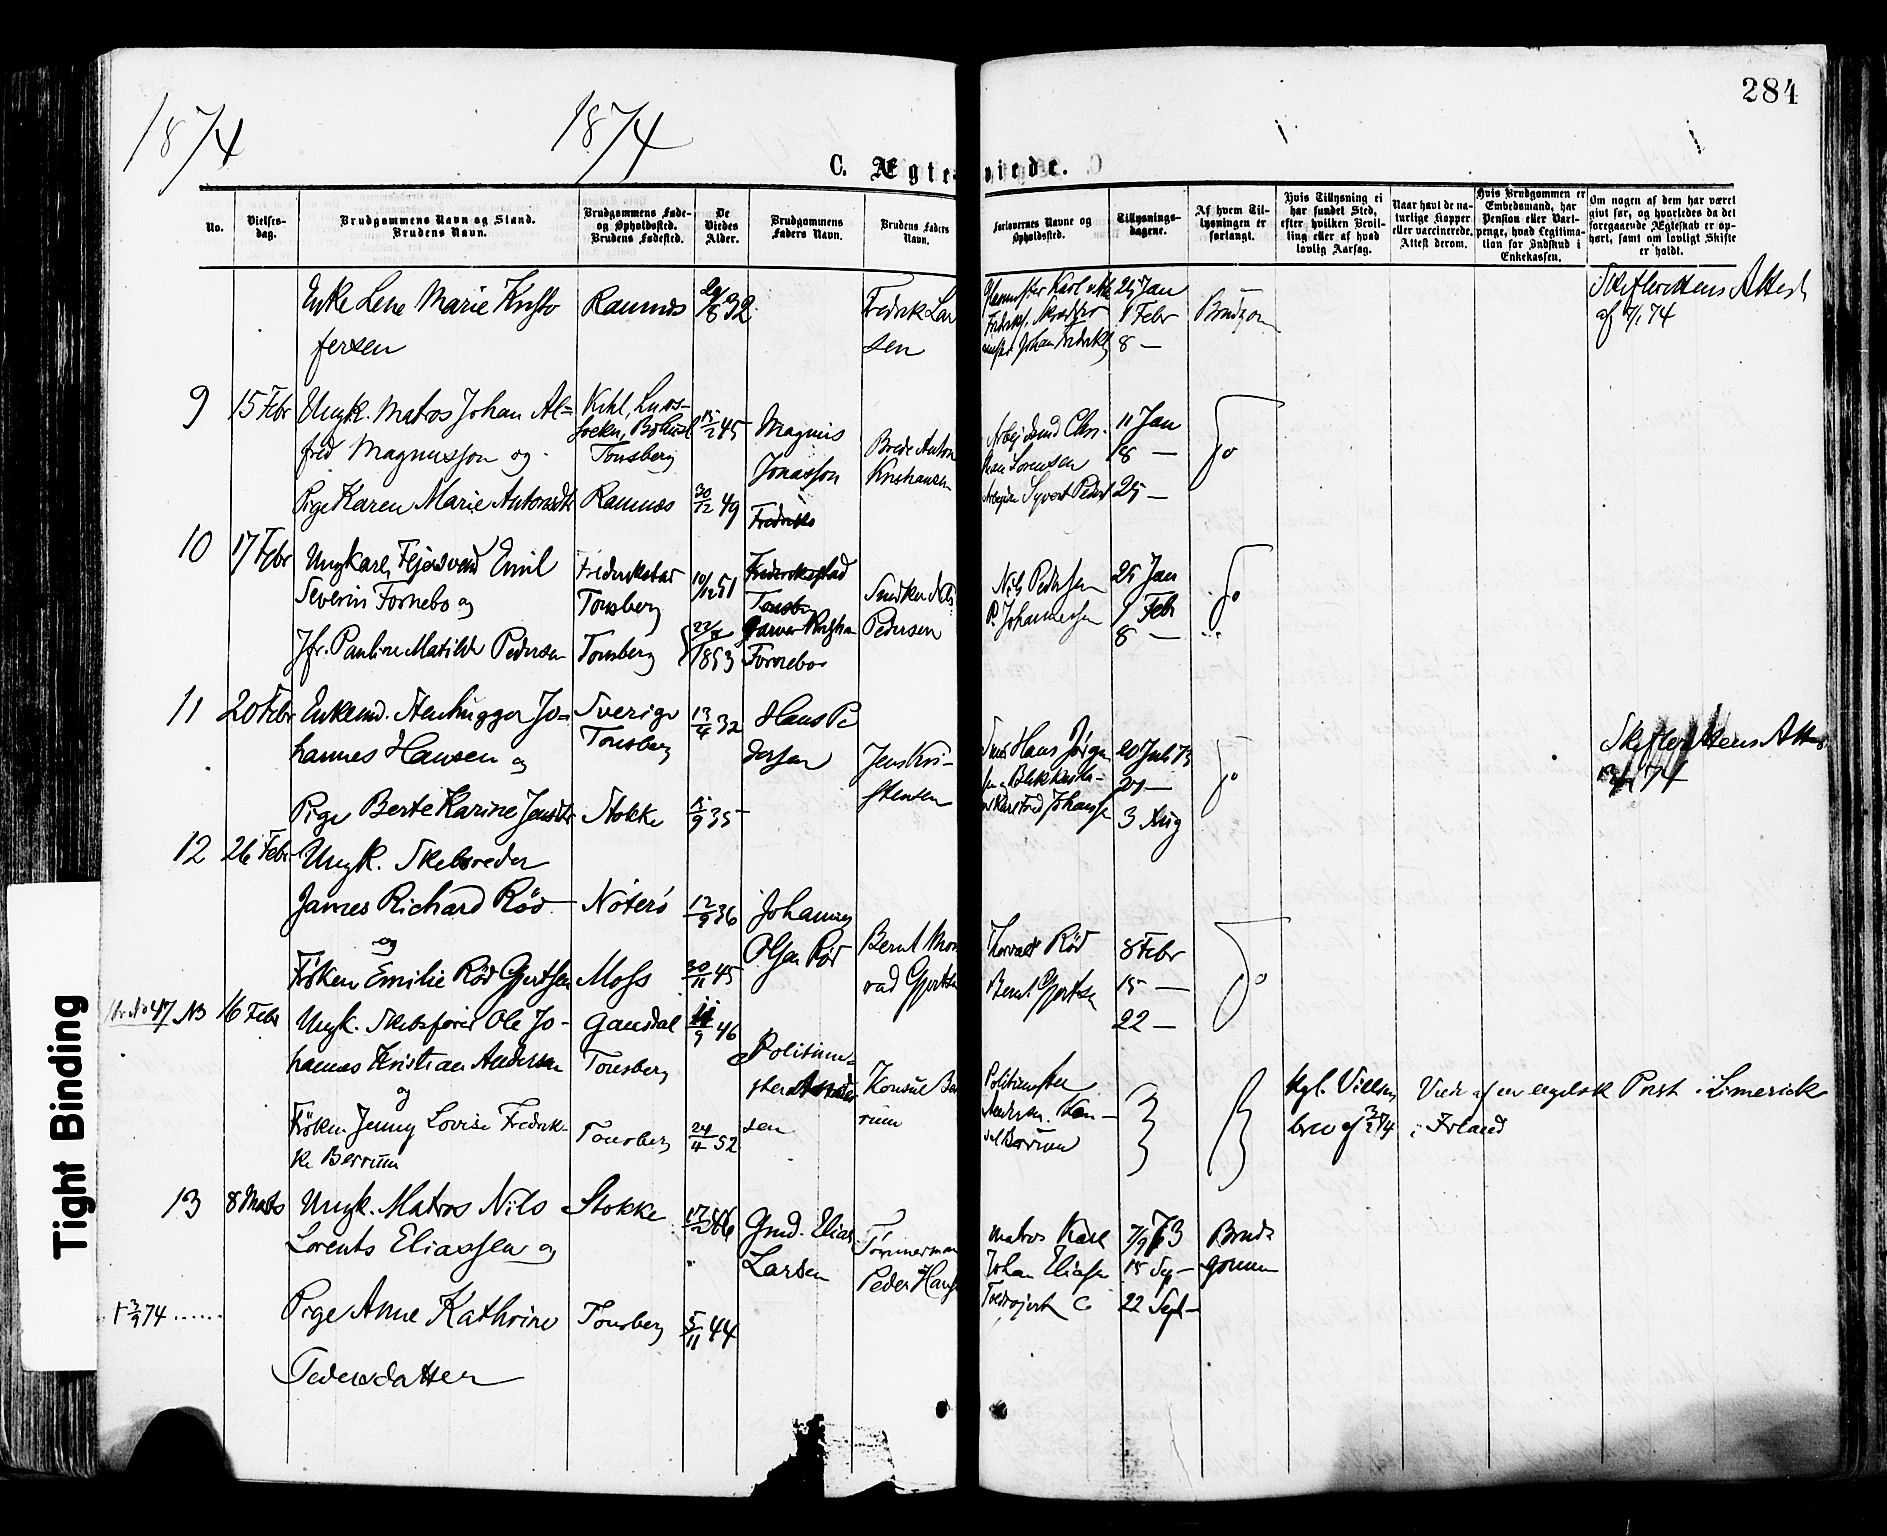 284
1874
1874
C. Ægteviede.
No.
Vielses-
dag.
Brudgommens Navn og Stand.
Brudens Navn.
Brudgommens Føde-
og Opholdssted.
Brudens Fødested.
De
Viedes
Alder.
Brudgommens
Faders Navn.
Brudens Faders
Navn.
Forlovernes Navne og
Opholdssted.
Tillysnings-
dagene.
Af hvem Til-
lysningen er
forlangt.
Hvis Tillysning ei
har fundet Sted,
efter hvilken Bevil-
ling eller af hvad
lovlig Aarsag.
Naar havt de na-
turlige Kopper
eller vaccinerede.
Attest derom.
Hvis Brudgommen er
Embedsmand, har
Pension eller Vart-
penge, hvad Legitima-
tion for Indskud i
Enkekassen.
Om nogen af dem har været
givt før, og hvorledes da det
foregaaende Ægteskab er op-
hørt, samt om lovligt Skifte
er holdt.
Enke Lene Marie Kristo
fersen
Ramnes
32
Fredrik Lar
sen
25 Jan
1 Febr
8 —
Skifterettens Attest
74
9
15 Febr
Ungk. Matros Johan Al=
fred Magnusson og
Pige Karen Marie
Tonsberg
Ramnes
15/2 45
30/12 49
Magnus
Jonasson
Brede Anton
Kristiansen
Sorensen
11 Jan
18 —
25 —
do
10
17 Febr
Ungkarl, Emil
Severin Fornebo og
Jfr. Pauline Matilde Pedersen
Frederikstad
Tonsberg
Tonsberg
10/12 51
1853
Fornebo
Snedker
Pedersen
Nils Pedersen
P. Johannesen
25 Jan
1 Feb
8 —
do
11
20 Febr
Enkemd. Stenhugger Jo=
hannes Hansen og
Pige Berte Karine
Sverige
Tonsberg
Stokke
13/4 32
15/9 35
Hans Pe
dersen
Jens Kri-
stensen
Hans Jørgen
20 Juli 73
27 —
3 Aug
do
Skifterettens Att
74
12
26 Febr
Ungk. Skibsreder
James Richard Rød
og
Frøken Emilie Rød Gjertsen
Nøterø
Moss
12/9 36
30/11 45
Johannes
Olsen Rød
Bernt Mon
rad Gjertsen
Thorvald Rød
Bernt Gjertsen
8 Febr
15 —
22 —
do
47 NB
16 Febr
Ungk. Skibsfører Ole Jo-
hannes Kristian Andersen
og
Frøken Jenny Lovise Fredrik-
ke Berrum
Gausdal
Tonsberg
Tonsberg
46
24/4 52
Politime-
ster Ander
sen
Konsul Ber
rum
Politimester
Andersen. Kon-
sul Berrum
Kgl. Villses
brev af 3/2 74
Viede af en engelsk Prest i Limerick
i Irland
13
8 Marts
Ungk. Matros Nils
Lorents Eliassen og
Pige Anne Kathrine
Pedersdatter
Stokke
Tonsberg
17/2 46
5/11 44
Gmd. Elias
Larsen
Tømmermand
Peder Hans
Matros Karl
Johan Eliasen
7/9 73
15 Sep —
22 Sept —
Brud-
gommen
† 3/9 74 ......
Tight Binding